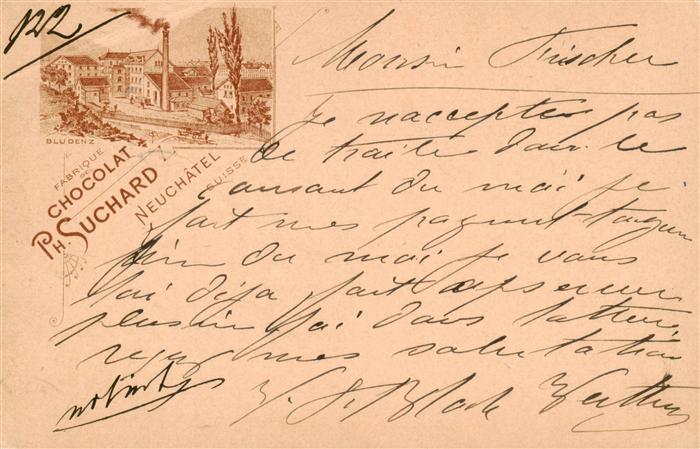 122
BLUDENZ
FABRIQUE
DE
CHOCOLAT
PH. SUCHARD
NEUCHÂTEL
SUISSE
Monsieur Fischer
Je n'accepte pas
de traite dans le
courant du moi je
fait mes payment toujour
fin du moi je vous
l'ai déja fait observer
plusieur foi dans l'attente
recez mes salutation